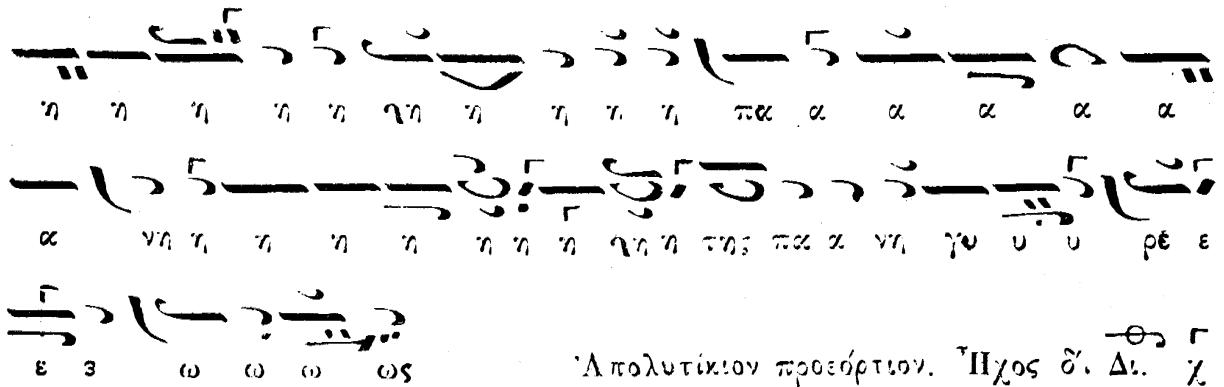 η η η η η ϥη η η η η πα α α α α α
α νη η η η η η η η ϥη η της πα α νη γυ υ υ ρέ ε
ε ε ω ω ω ως Ἀπολυτίκιον προεόρτιον. Ἦχος δ΄. Δι.